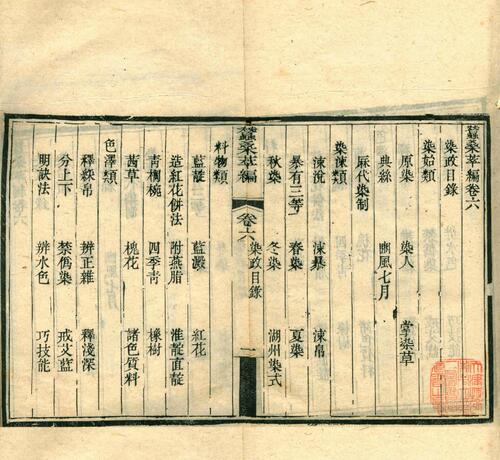 蠶桑萃編卷六
染政目錄
染始類
原染 染人 掌染草
典絲 豳風七月
歷代染制
染涑類
涑涚 涑暴 涑帛
暴有三等 春染 夏染
秋染 冬染 湖州染式
蠶桑萃編 卷六 染政目錄 一
料物類
藍靛 藍澱 紅花
造紅花併法 附燕脂 淮靛直靛
青棡椀 四季青 橡樹
茜草 槐花 諸色質料
色澤類
釋綵帛 辨正雜 釋淺深
分上下 禁僞染 戒艾藍
明訣法 辨水色 巧技能